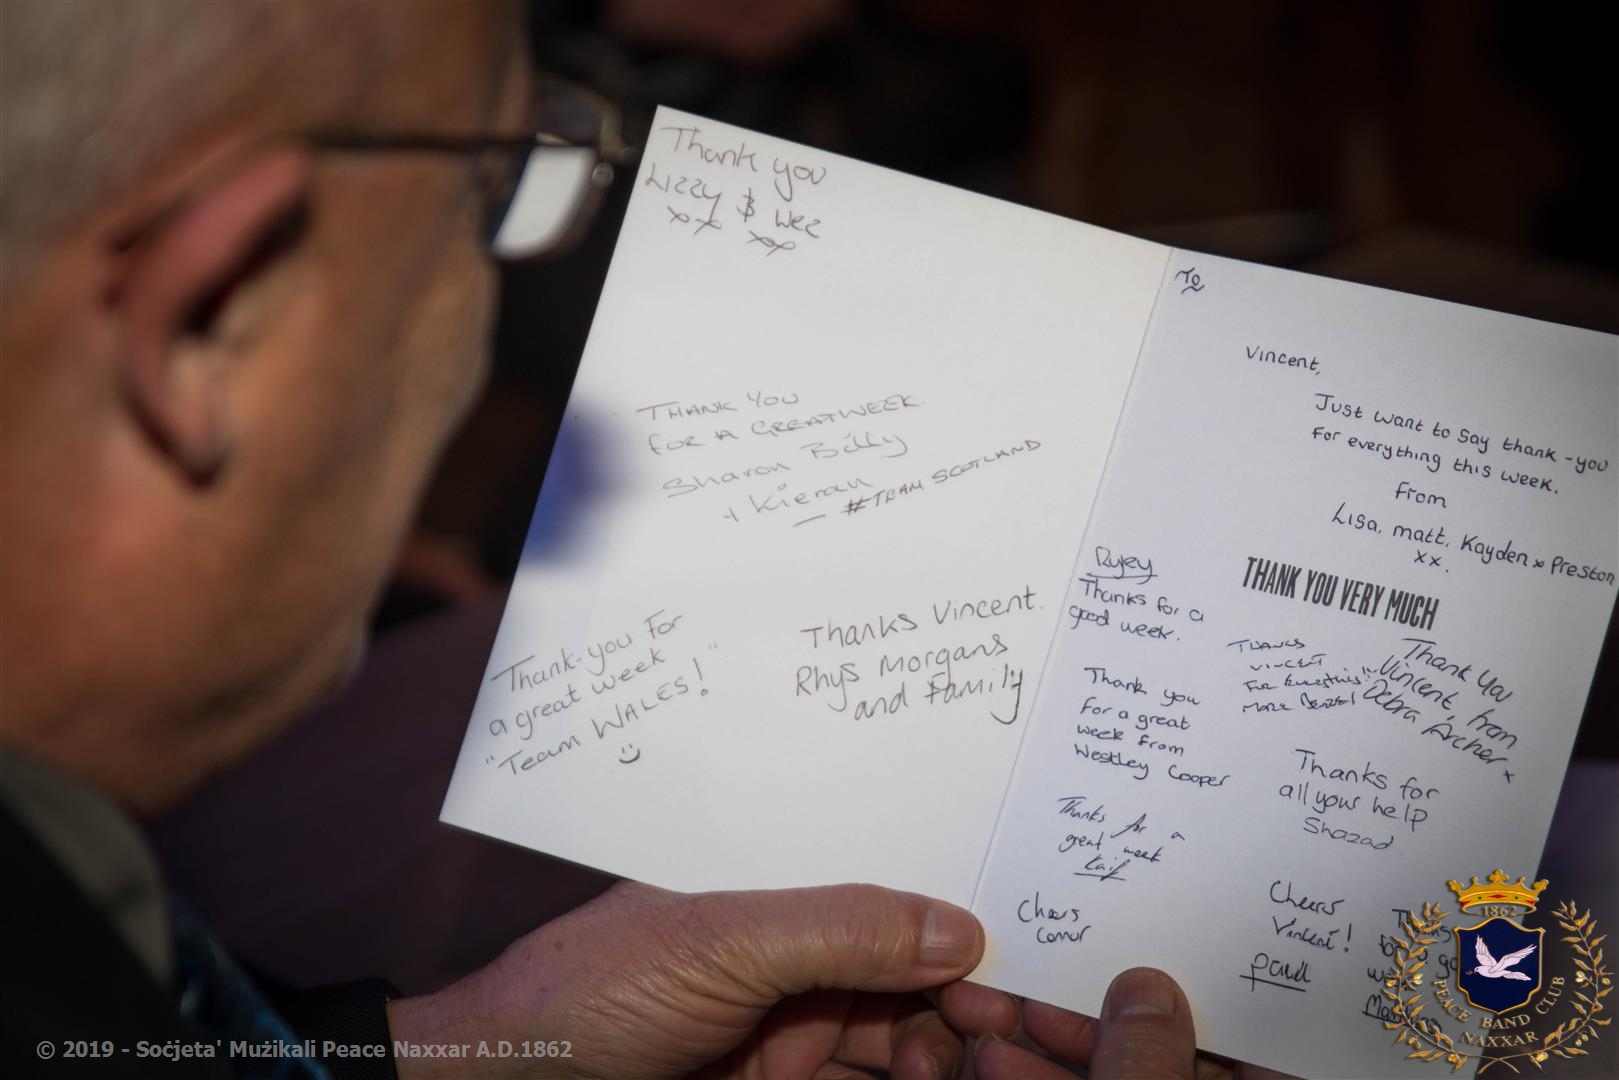 Thank you
Lizzy & Wez
xx xx
THANK YOU
FOR A GREAT WEEK.
Sharon Billy
+ Kieran
- #TEAM SCOTLAND
Thank-you For
a great week
"Team WALES!"
Thanks Vincent.
Rhys Morgans
and Family
To
Vincent,
Just want to say thank-you
for everything this week.
From
Lisa, matt, Kayden & Preston
xx.
THANK YOU VERY MUCH
Thanks for a
good week.
THANKS
VINCENT
Thank You
Vincent, from
Debra Archer x
Thank you
for a great
week from
Westley Cooper
Thanks for
all your help
Shazad
Thanks for a
great week
Kaif
Cheers
Connor
Cheers
Vincent!
Paul
1862
PEACE BAND CLUB
NAXXAR
© 2019 - Soċjeta' Mużikali Peace Naxxar A.D.1862